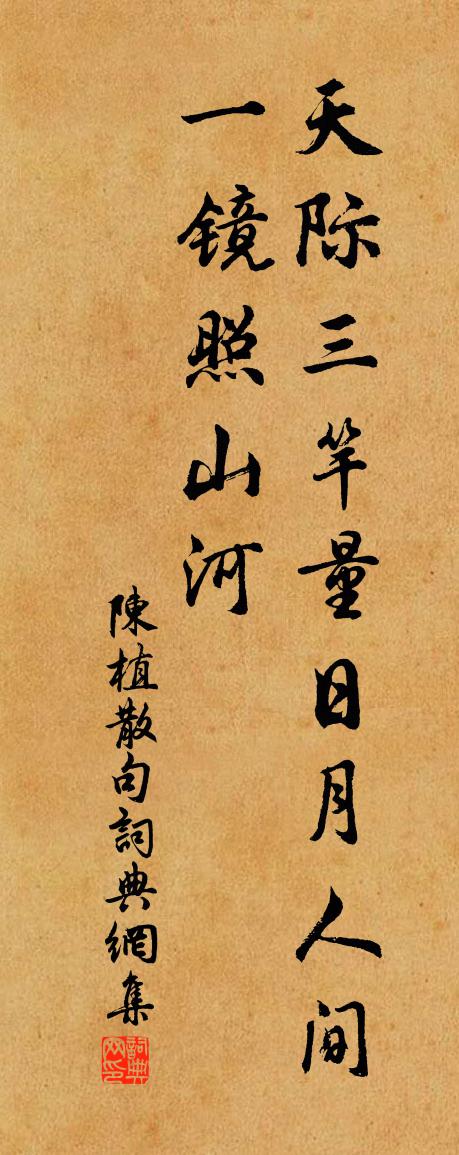 天际三竿量日月人间
一镜照山河
陳植散句詞典網集
詞典
网印